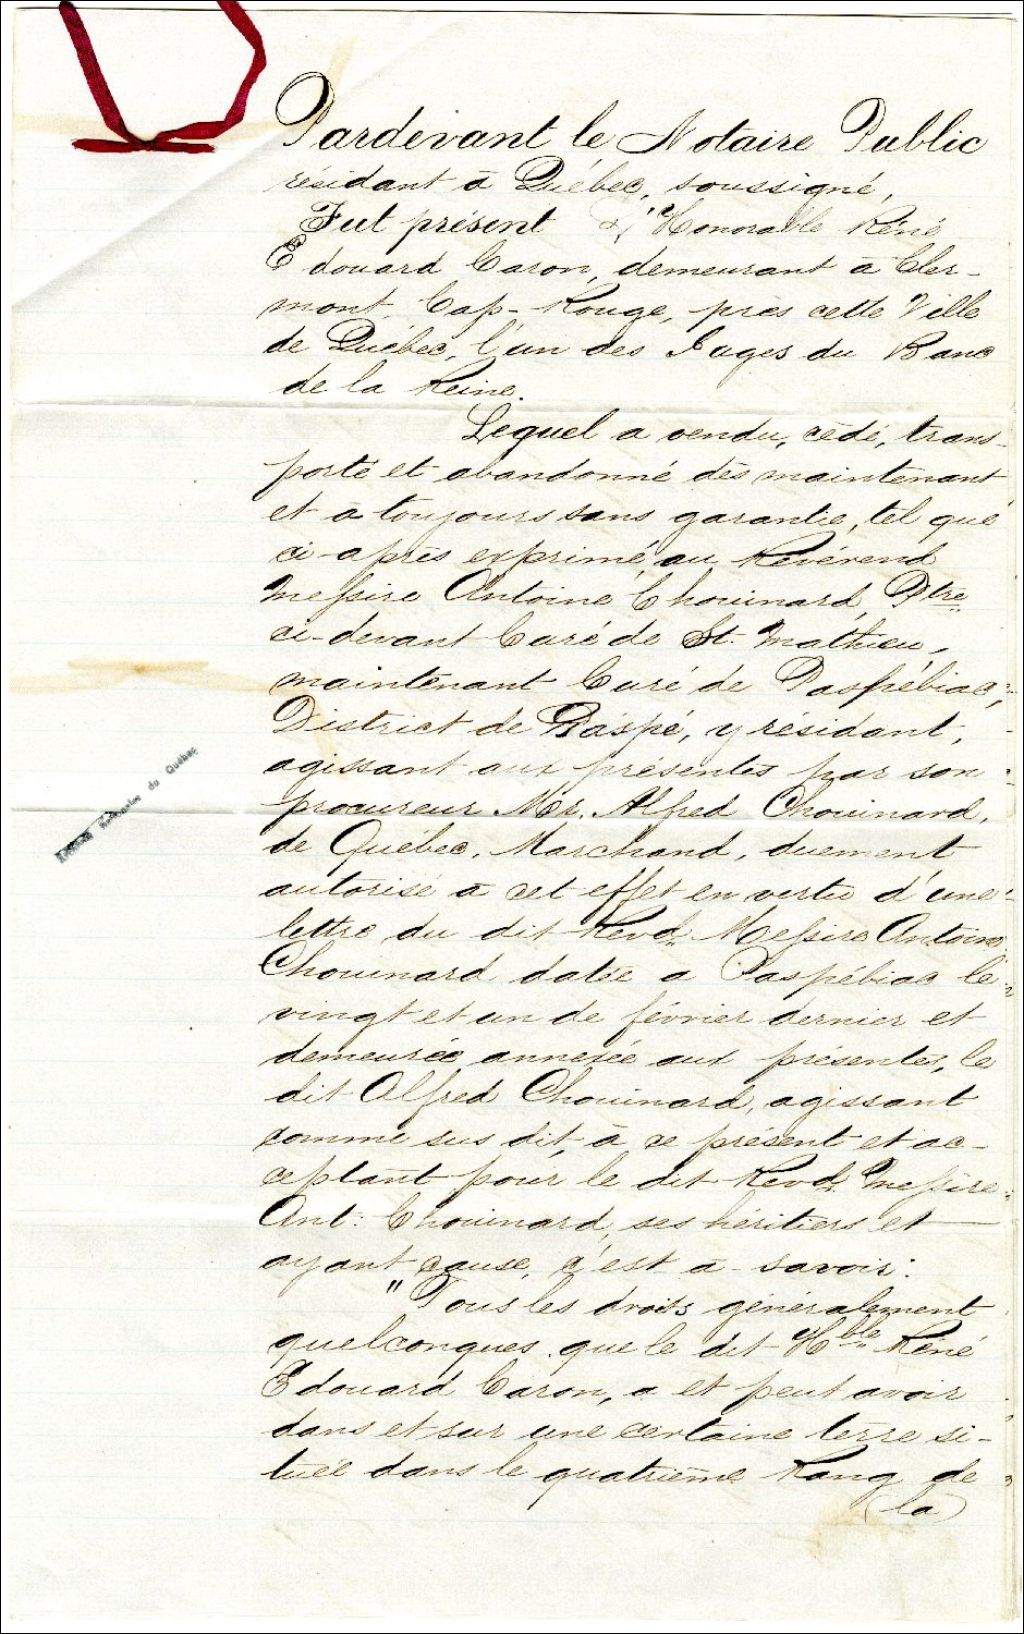 Pardevant le Notaire Public
résidant à Québec, soussigné,
Fut présent L'Honorable Réné
Edouard Caron, demeurant à Cler-
mont, Cap-Rouge, près cette Ville
de Québec, l'un des Juges du Banc
de la Reine.
Lequel a vendu, cédé, trans-
porté et abandonné dès maintenant
et à toujours sans garantie, tel que
ci-après exprimé, au Révérend
Messire Antoine Chouinard, Ptre
ci-devant Curé de St. Mathieu,
maintenant Curé de Paspébiac,
District de Gaspé, y résidant,
agissant aux présentes par son
procureur Mr. Alfred Chouinard,
de Québec, Marchand, duement
autorisé à cet effet en vertu d'une
lettre du dit Revd. Messire Antoine
Chouinard datée a Paspébiac le
vingt et un de février dernier et
demeurée annexée aux présentes, le
dit Alfred Chouinard, agissant
comme sus dit, à ce présent et ac-
ceptant pour le dit Revd. Messire
Ant: Chouinard, ses héritiers et
ayant cause, c'est à-savoir:
"Tous les droits généralement
quelconques que le dit Hble Réné
Edouard Caron, a et peut avoir
dans et sur une certaine terre si-
tuée dans le quatrième Rang de
(la)
Nationales du Québec